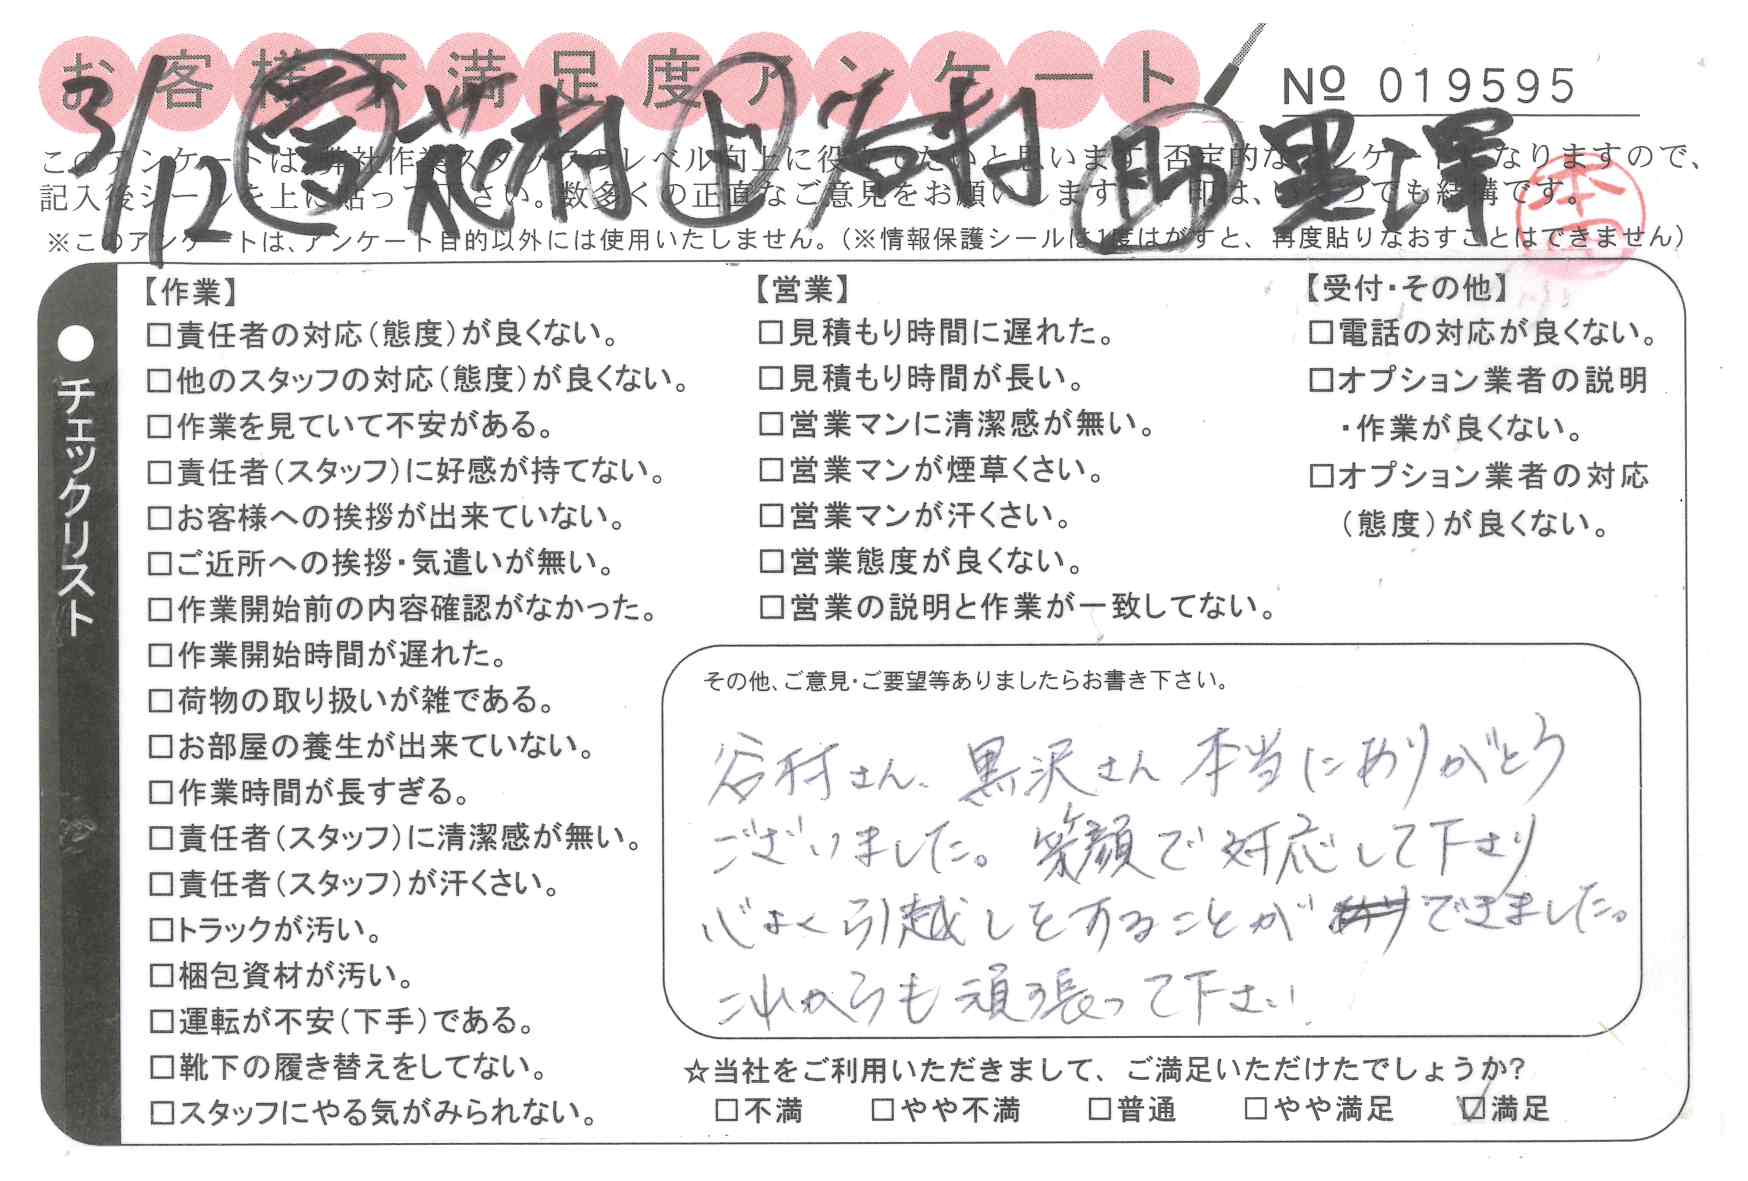 お客様不満足度アンケート
№ 019595
3/12 営 花村 担 谷村 助 黒澤
このアンケートは、弊社作業スタッフのレベル向上に役立てたいと思います。否定的なアンケートになりますので、
記入後シールを上に貼って下さい。数多くの正直なご意見をお願いします。✓印は、いくつでも結構です。
※このアンケートは、アンケート目的以外には使用いたしません。(※情報保護シールは1度はがすと、再度貼りなおすことはできません)
●チェックリスト
【作業】
□責任者の対応(態度)が良くない。
□他のスタッフの対応(態度)が良くない。
□作業を見ていて不安がある。
□責任者(スタッフ)に好感が持てない。
□お客様への挨拶が出来ていない。
□ご近所への挨拶・気遣いが無い。
□作業開始前の内容確認がなかった。
□作業開始時間が遅れた。
□荷物の取り扱いが雑である。
□お部屋の養生が出来ていない。
□作業時間が長すぎる。
□責任者(スタッフ)に清潔感が無い。
□責任者(スタッフ)が汗くさい。
□トラックが汚い。
□梱包資材が汚い。
□運転が不安(下手)である。
□靴下の履き替えをしてない。
□スタッフにやる気がみられない。
【営業】
□見積もり時間に遅れた。
□見積もり時間が長い。
□営業マンに清潔感が無い。
□営業マンが煙草くさい。
□営業マンが汗くさい。
□営業態度が良くない。
□営業の説明と作業が一致してない。
【受付・その他】
□電話の対応が良くない。
□オプション業者の説明
・作業が良くない。
□オプション業者の対応
(態度)が良くない。
その他、ご意見・ご要望等ありましたらお書き下さい。
谷村さん、黒沢さん 本当にありがとう
ございました。笑顔で対応して下さり
心よく引越しをすることができました。
これからも頑張って下さい!
☆当社をご利用いただきまして、ご満足いただけたでしょうか?
□不満 □やや不満 □普通 □やや満足 ☑満足